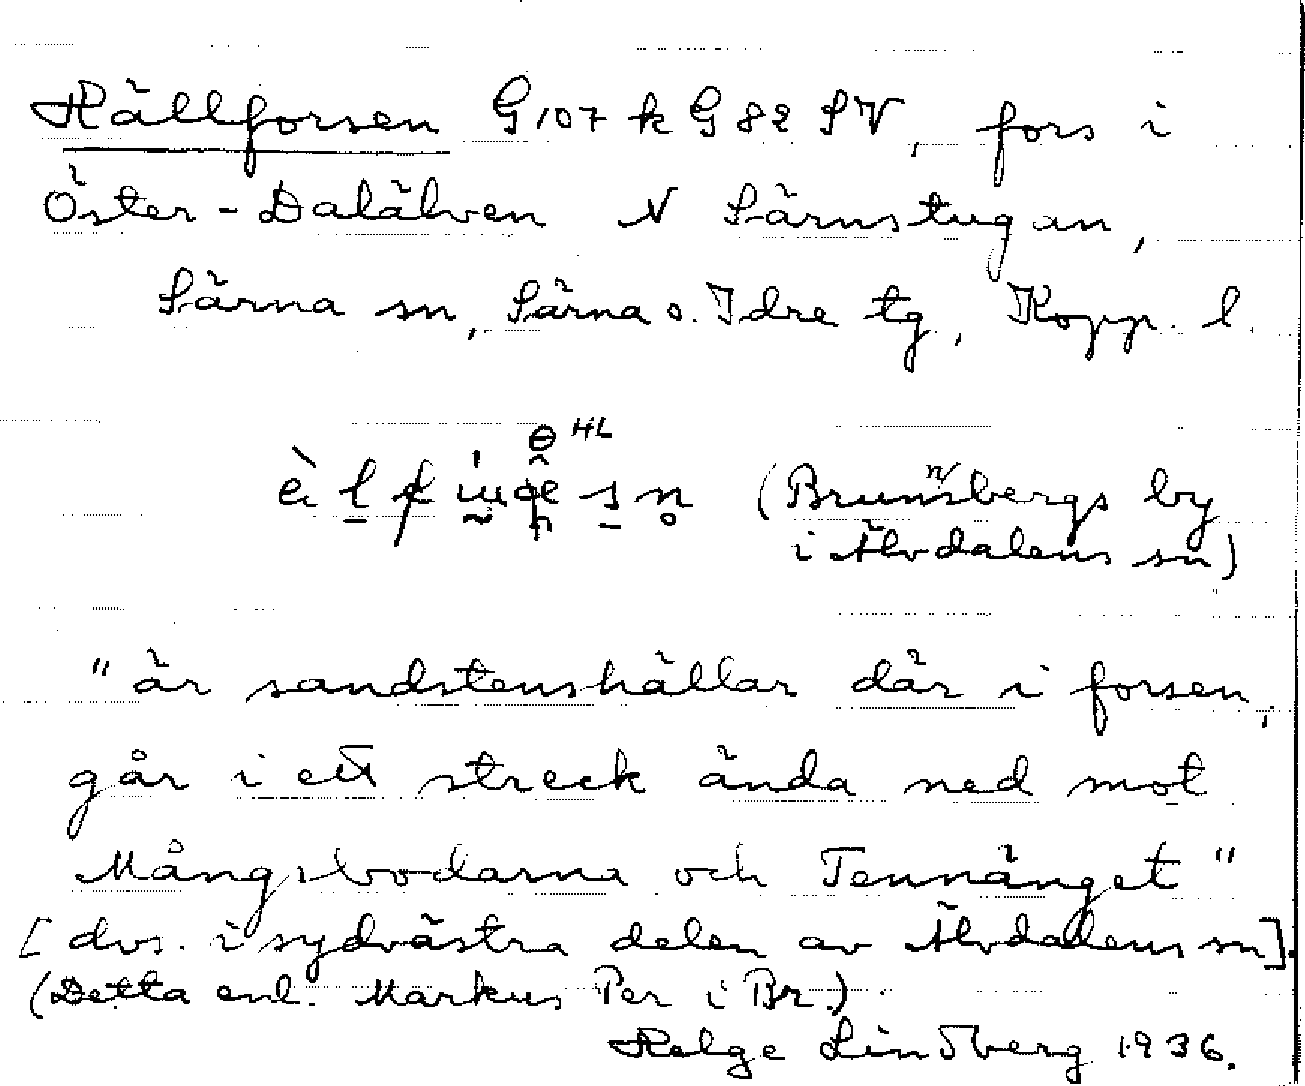 Hällforsen G107 k G82 SV, fors i
Öster-Dalälven N Särnstugan,
Särna sn, Särna o. Idre tg, Kopp. l.
HL
(Brunnsbergs by
i Älvdalens sn)
"är sandstenshällar där i forsen,
går i ett streck ända ned mot
Mångsbodarna och Tennänget"
[dvs. i sydvästra delen av Älvdalens sn].
(Detta enl. Markus Per i Br.)
Helge Lindberg 1936.